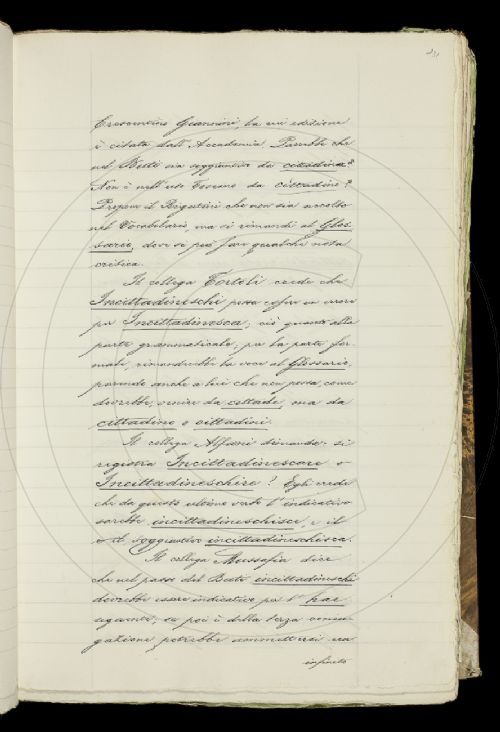 Crescentino Giannini, la cui edizione
è citata dall'Accademia. Parrebbe che
nel Buti sia soggiuntivo da cittadina?
Non è nell'uso Toscano da cittadino?
Propone il Bogatini che non sia accolto
nel Vocabolario, ma si rimandi al Glos-
sario, dove si può fare qualche nota
critica.
Il collega Tortoli crede che
Incittadineschi possa essere un errore
per Incittadinesca, ciò quanto alla
parte grammaticale; per la parte for-
male, rimanderebbe la voce al Glossario,
parendo anche a lui che non possa, come
dovrebbe, venire da cittade, ma da
cittadino o cittadini.
Il collega Alfani dimanda: si
registra Incittadinescare o
Incittadineschire? Egli crede
che da questo ultimo verbo l'indicativo
sarebbe incittadineschisce, e il
o il soggiuntivo incittadineschisca.
Il collega Mussafia dice
che nel passo del Buti incittadineschi
dovrebbe essere indicativo per l'
seguente; se poi è della terza coniu-
gazione, potrebbe ammettersi una
infinito